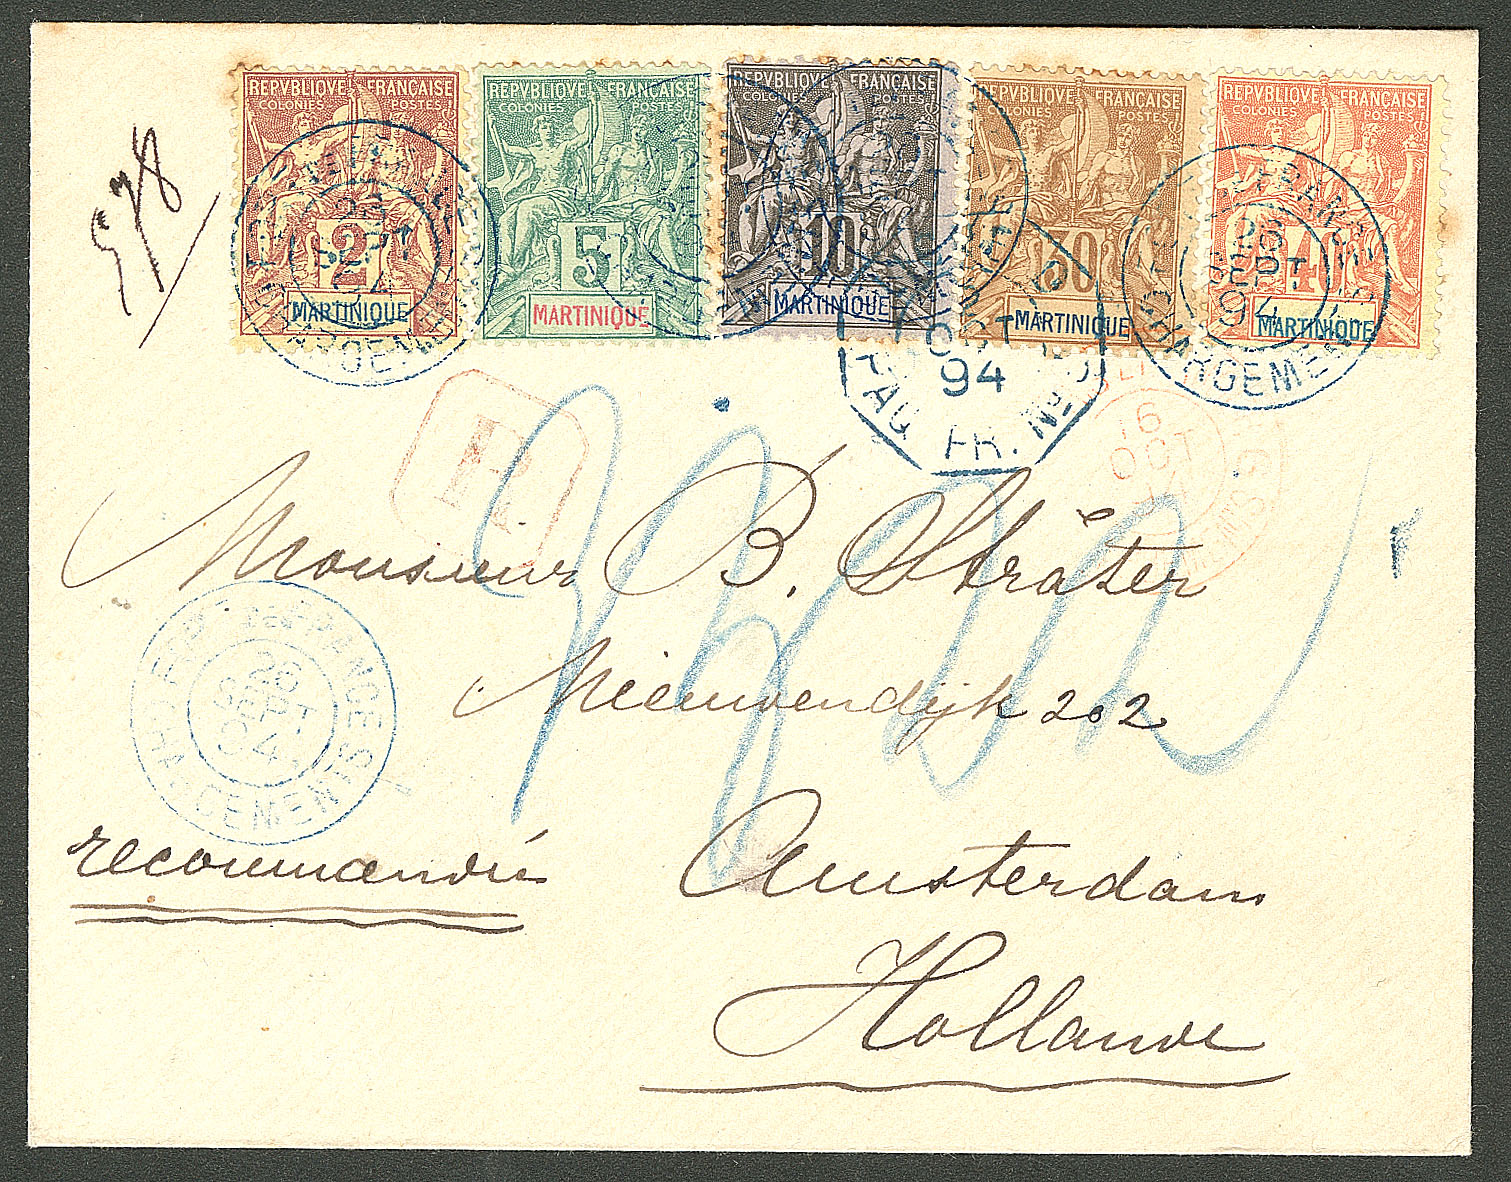 REPVBLIQVE FRANÇAISE
COLONIES POSTES
2
MARTINIQUE
REPVBLIQVE FRANÇAISE
COLONIES POSTES
5
MARTINIQUE
REPVBLIQVE FRANÇAISE
COLONIES POSTES
10
MARTINIQUE
REPVBLIQVE FRANÇAISE
COLONIES POSTES
30
MARTINIQUE
REPVBLIQVE FRANÇAISE
COLONIES POSTES
40
MARTINIQUE
23
SEPT
94
CHARGEMENTS
1 OCT
94
PAQ. FR. No
26
SEPT
94
CHARGEMENTS
R
16
OCT
Monsieur B. Sträter
Nieuwendijk 202
FORT DE FRANCE
26
SEPT
94
CHARGEMENTS
recommandée
Amsterdam
Hollande